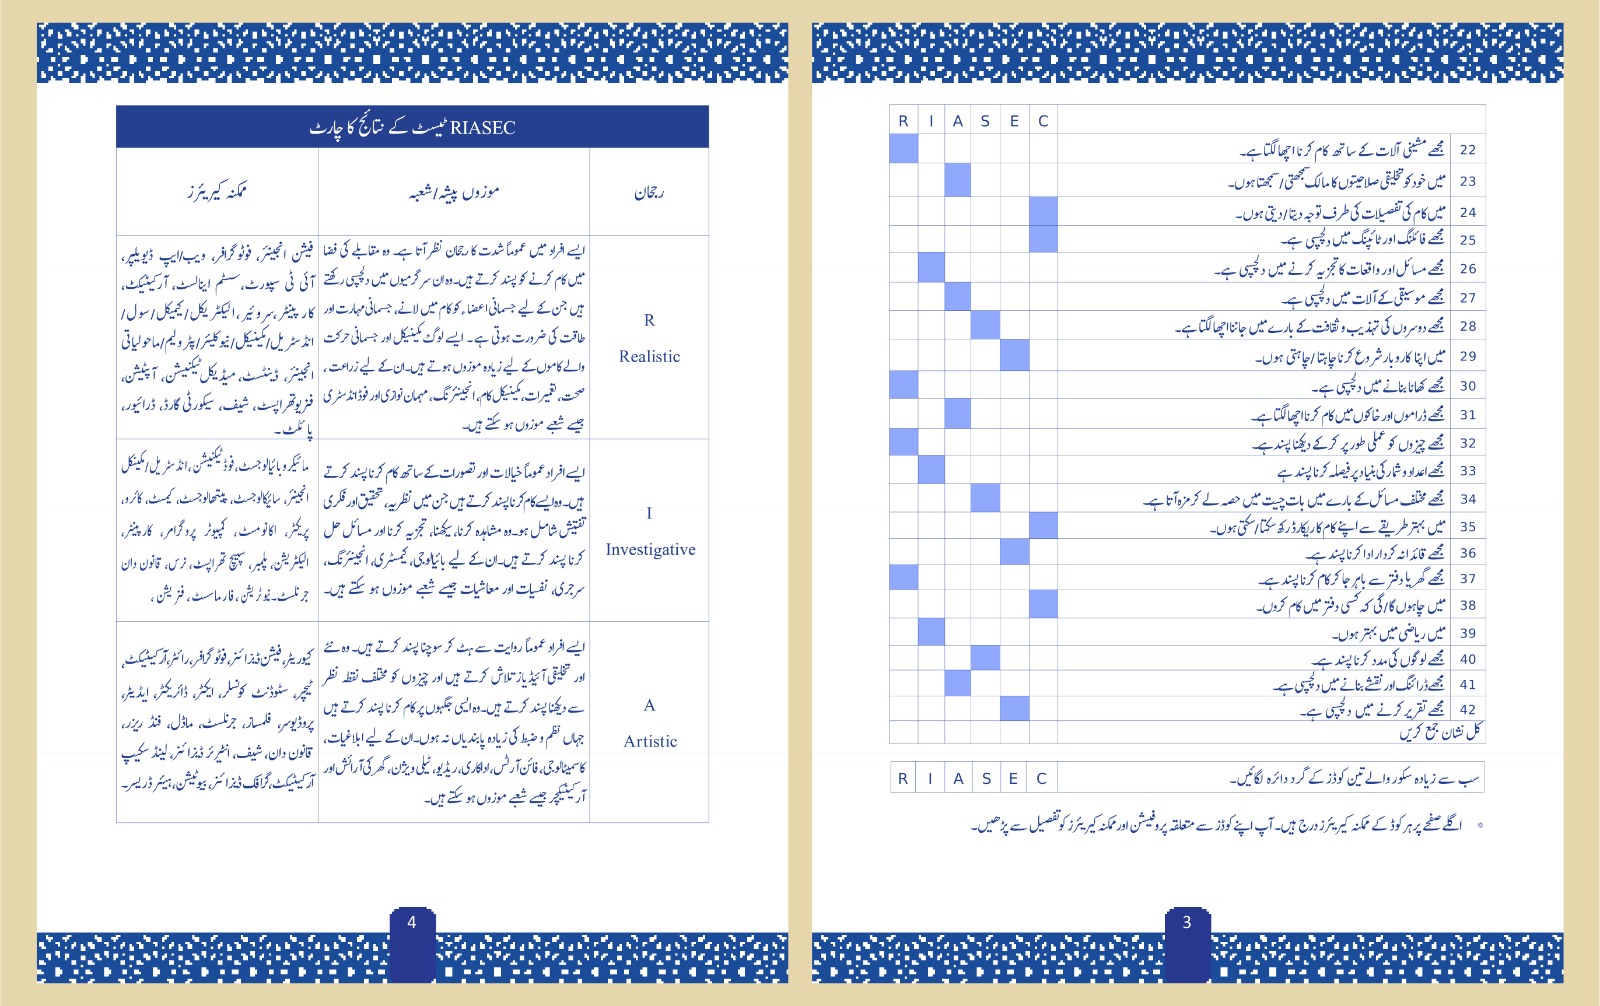 R I A S E C
22 مجھے مشینی آلات کے ساتھ کام کرنا اچھا لگتا ہے۔
23 میں خود کو تخلیقی صلاحیتوں کا مالک سمجھتی/سمجھتا ہوں۔
24 میں کام کی تفصیلات کی طرف توجہ دیتا/دیتی ہوں۔
25 مجھے فائلنگ اور ٹائپنگ میں دلچسپی ہے۔
26 مجھے مسائل اور واقعات کا تجزیہ کرنے میں دلچسپی ہے۔
27 مجھے موسیقی کے آلات میں دلچسپی ہے۔
28 مجھے دوسروں کی تہذیب و ثقافت کے بارے میں جاننا اچھا لگتا ہے۔
29 میں اپنا کاروبار شروع کرنا چاہتا/چاہتی ہوں۔
30 مجھے کھانا بنانے میں دلچسپی ہے۔
31 مجھے ڈراموں اور خاکوں میں کام کرنا اچھا لگتا ہے۔
32 مجھے چیزوں کو عملی طور پر کر کے دیکھنا پسند ہے۔
33 مجھے اعداد و شمار کی بنیاد پر فیصلہ کرنا پسند ہے
34 مجھے مختلف مسائل کے بارے میں بات چیت میں حصہ لے کر مزہ آتا ہے۔
35 میں بہتر طریقے سے اپنے کام کا ریکارڈ رکھ سکتا/سکتی ہوں۔
36 مجھے قائدانہ کردار ادا کرنا پسند ہے۔
37 مجھے گھر یا دفتر سے باہر جا کر کام کرنا پسند ہے۔
38 میں چاہوں گا/گی کہ کسی دفتر میں کام کروں۔
39 میں ریاضی میں بہتر ہوں۔
40 مجھے لوگوں کی مدد کرنا پسند ہے۔
41 مجھے ڈرائنگ اور نقشے بنانے میں دلچسپی ہے۔
42 مجھے تقریر کرنے میں دلچسپی ہے۔
کل نشان جمع کریں
سب سے زیادہ سکور والے تین کوڈز کے گرد دائرہ لگائیں۔ R I A S E C
اگلے صفحے پر ہر کوڈ کے ممکنہ کیریئرز درج ہیں۔ آپ اپنے کوڈز سے متعلقہ پروفیشن اور ممکنہ کیریئرز کو تفصیل سے پڑھیں۔
3
RIASEC ٹیسٹ کے نتائج کا چارٹ
رجحان
موزوں پیشہ/شعبہ
ممکنہ کیریئرز
R
Realistic
ایسے افراد میں عموماً شدت کا رجحان نظر آتا ہے۔ وہ مقابلے کی فضا
میں کام کرنے کو پسند کرتے ہیں۔ وہ ان سرگرمیوں میں دلچسپی رکھتے
ہیں جن کے لیے جسمانی اعضاء کو کام میں لانے، جسمانی مہارت اور
طاقت کی ضرورت ہوتی ہے۔ ایسے لوگ مکینیکل اور جسمانی حرکت
والے کاموں کے لیے زیادہ موزوں ہوتے ہیں۔ ان کے لیے زراعت،
صحت، تعمیرات، مکینیکل کام، انجینئرنگ، مہمان نوازی اور فوڈ انڈسٹری
جیسے شعبے موزوں ہو سکتے ہیں۔
فیشن انجینئر، فوٹوگرافر، ویب/ایپ ڈیویلپر،
آئی ٹی سپورٹ، سسٹم اینالسٹ، آرکیٹیکٹ،
کارپینٹر، سرویئر، الیکٹریکل/کیمیکل/سول/
انڈسٹریل/مکینیکل/نیوکلیئر/پٹرولیم/ماحولیاتی
انجینئر، ڈینٹسٹ، میڈیکل ٹیکنیشن، آپٹیشن،
فزیوتھراپسٹ، شیف، سیکورٹی گارڈ، ڈرائیور،
پائلٹ۔
I
Investigative
ایسے افراد عموماً خیالات اور تصورات کے ساتھ کام کرنا پسند کرتے
ہیں۔ وہ ایسے کام کرنا پسند کرتے ہیں جن میں نظریہ، تحقیق اور فکری
تفتیش شامل ہو۔ وہ مشاہدہ کرنا، سیکھنا، تجزیہ کرنا اور مسائل حل
کرنا پسند کرتے ہیں۔ ان کے لیے بائیالوجی، کیمسٹری، انجینئرنگ،
سرجری، نفسیات اور معاشیات جیسے شعبے موزوں ہو سکتے ہیں۔
مائیکروبائیالوجسٹ، فوڈ ٹیکنیشن، انڈسٹریل/مکینکل
انجینئر، سائیکالوجسٹ، پیتھالوجسٹ، کیمسٹ، کائرو،
پریکٹر، اکانومسٹ، کمپیوٹر پروگرامر، کارپینٹر،
الیکٹریشن، پلمبر، سپیچ تھراپسٹ، نرس، قانون دان
جرنلسٹ۔ نیوٹریشن، فارماسسٹ، فزیشن،
A
Artistic
ایسے افراد عموماً روایت سے ہٹ کر سوچنا پسند کرتے ہیں۔ وہ نئے
اور تخلیقی آئیڈیاز تلاش کرتے ہیں اور چیزوں کو مختلف نقطہ نظر
سے دیکھنا پسند کرتے ہیں۔ وہ ایسی جگہوں پر کام کرنا پسند کرتے ہیں
جہاں نظم و ضبط کی زیادہ پابندیاں نہ ہوں۔ ان کے لیے ابلاغیات،
کاسمیٹالوجی، فائن آرٹس، اداکاری، ریڈیو، ٹیلی ویژن، گھر کی آرائش اور
آرکیٹیکچر جیسے شعبے موزوں ہو سکتے ہیں۔
کیوریٹر، فیشن ڈیزائنر، فوٹوگرافر، رائٹر، آرکیٹیکٹ،
ٹیچر، سٹوڈنٹ کونسلر، ایکٹر، ڈائریکٹر، ایڈیٹر،
پروڈیوسر، فلمساز، جرنلسٹ، ماڈل، فنڈ ریزر،
قانون دان، شیف، انٹیرئر ڈیزائنر، لینڈ سکیپ
آرکیٹیکٹ، گرافک ڈیزائنر، بیوٹیشن، ہیئر ڈریسر۔
4